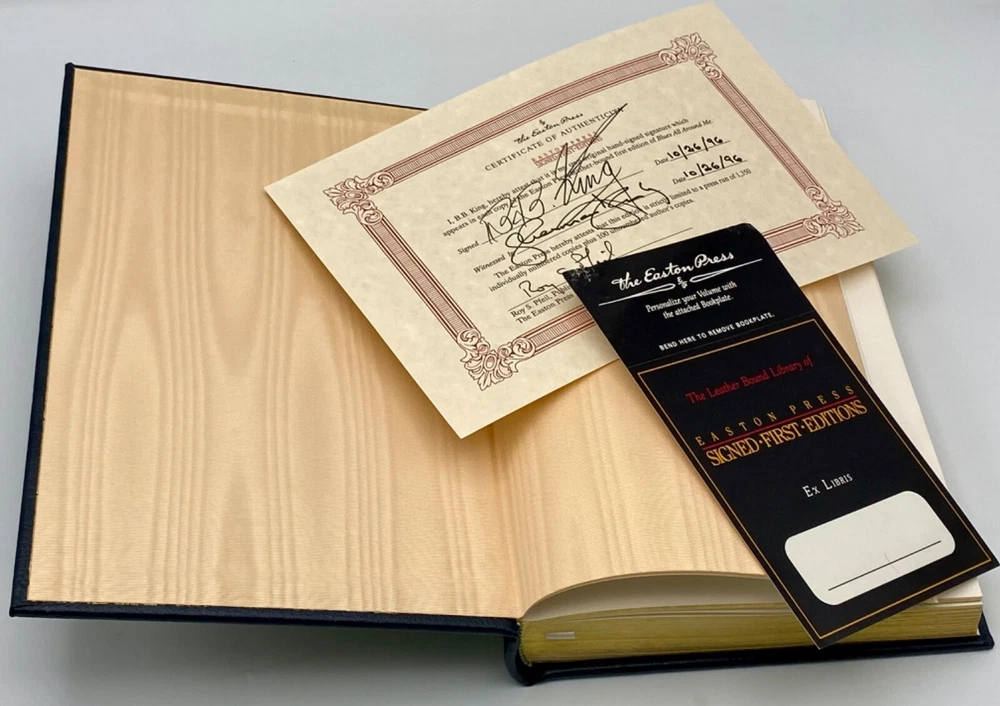 The Easton Press
CERTIFICATE OF AUTHENTICITY
EASTON PRESS
SIGNED FIRST EDITIONS
I, B.B. King, hereby attest that it is my original hand-signed signature which
appears in each copy of the Easton Press leather-bound first edition of Blues All Around Me.
Signed BB King Date 10/26/96
Witnessed Date 10/26/96
The Easton Press hereby attests that this edition is strictly limited to a press run of 1,350
individually numbered copies plus 100 author's copies.
Roy S Pfeil
Roy S. Pfeil,
The Easton Press
The Easton Press
Personalize your Volume with
the attached Bookplate.
BEND HERE TO REMOVE BOOKPLATE.
The Leather Bound Library of
EASTON PRESS
SIGNED·FIRST·EDITIONS
EX LIBRIS